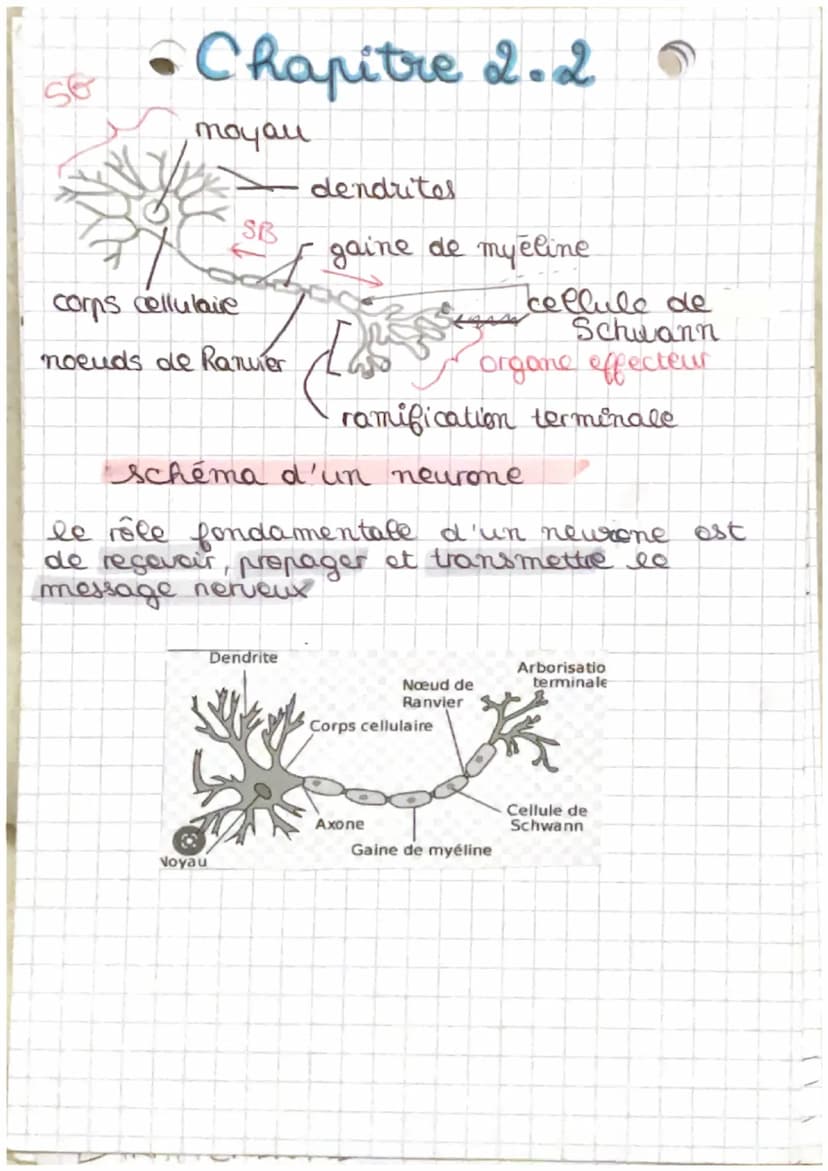 Chapitre 2.2
SG
moyau
dendrites
SB
gaine de myéline
corps cellulaire
cellule de
Schwann
noeuds de Ranvier
organe effecteur
ramification terminale
schéma d'un neurone
le rôle fondamentale d'un neurone est
de reçevoir, propager et transmettre le
message nerveux
Dendrite
Arborisatio
terminale
Nœud de
Ranvier
Corps cellulaire
Axone
Cellule de
Schwann
Gaine de myéline
Noyau